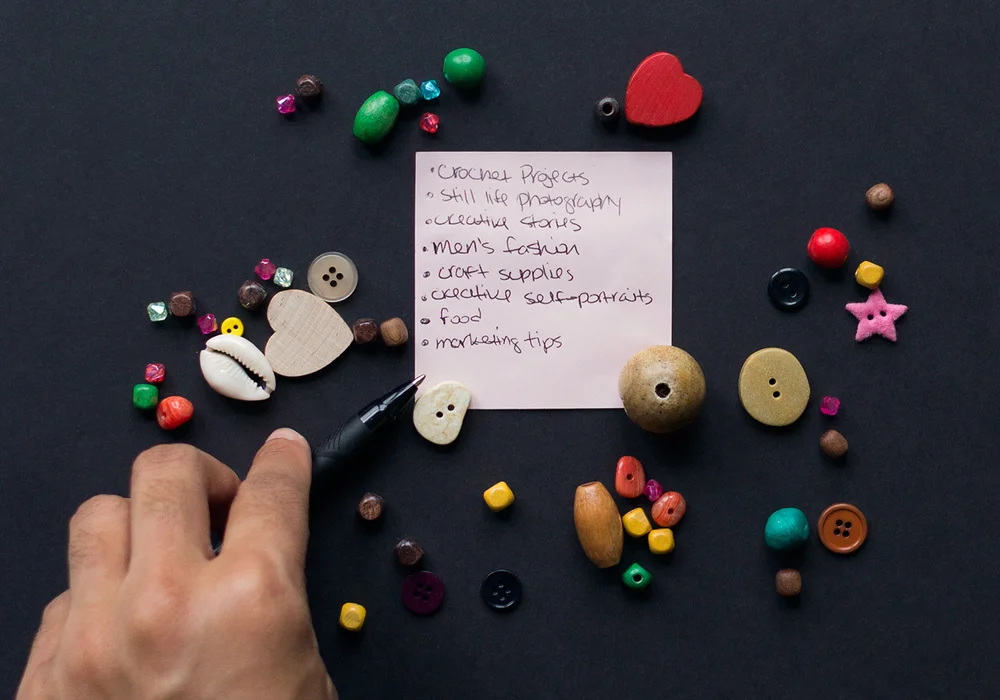 • Crochet Projects
• Still life photography
• creative stories
• men's fashion
• craft supplies
• creative self-portraits
• food
• marketing tips